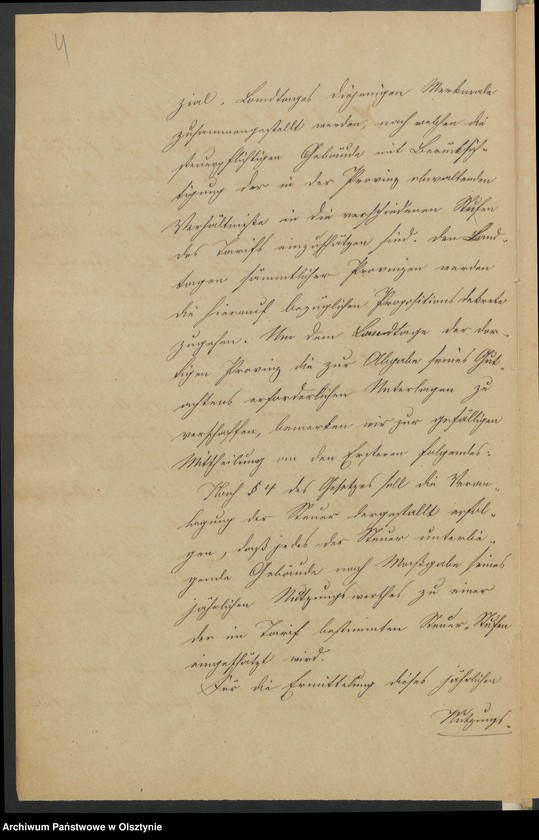 4
zial-Landtages diejenigen Merkmale
zusammengestellt werden, nach welchen die
steuerpflichtigen Gebäude mit Berücksich-
tigung der in der Provinz obwaltenden
Verhältniße in die verschiedenen Stufen
des Tarifs einzuschätzen sind. Den Land-
tagen sämmtlicher Provinzen werden
die hierauf bezüglichen Propositionsdekrete
zugehen. Um dem Landtage der dor-
tigen Provinz die zur Abgabe seines Gut-
achtens erforderlichen Unterlagen zu
verschaffen, bemerken wir zur gefälligen
Mittheilung an den Ersteren folgendes:
Nach § 4 des Gesetzes soll die Veran-
lagung der Steuer dergestallt erfol-
gen, daß jedes der Steuer unterlie-
gende Gebäude nach Maaßgabe seines
jährlichen Nutzungswerthes zu einer
der im Tarif bestimmten Steuer-Stufen
eingeschätzt wird.
Für die Ermittelung dieses jährlichen
Nutzungs-
Archiwum Państwowe w Olsztynie